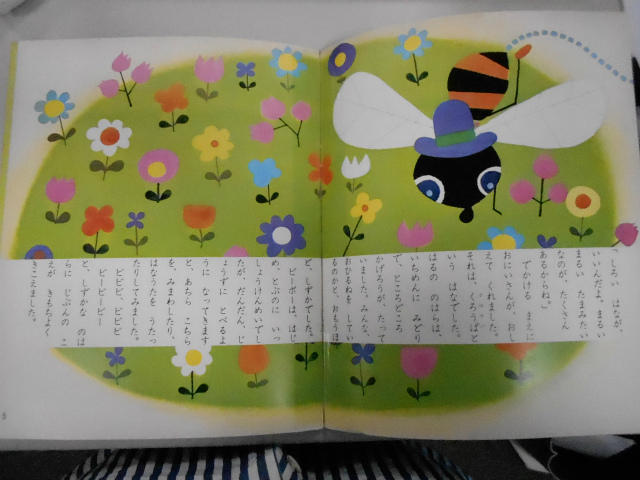 「しろい　はなが、
いいんだよ。まるい
まるい　たまみたい
なのが、たくさん
あるからね。」
でかける　まえに
おにいさんが、おし
えて　くれました。
それは、
いう　はなでした。
はるの　のはらは、
いちめんに　みどり
で、ところどころ
かげろうが、たって
いました。みんな、
おひるねを　してい
るのかと　おもうほ
ど、しずかでした。
ピーポーは、はじ
め、とぶのに　いっ
しょうけんめいでし
たが、だんだん、じ
ょうずに　とべるよ
うに　なってきます
と、あちら　こちら
を、みまわしたり、
はなうたを　うたっ
たりしてみました。
ピピピ、ピピピ
ピーピーピー
と、しずかな　のは
らに　じぶんの　こ
えが　きもちよく
きこえました。